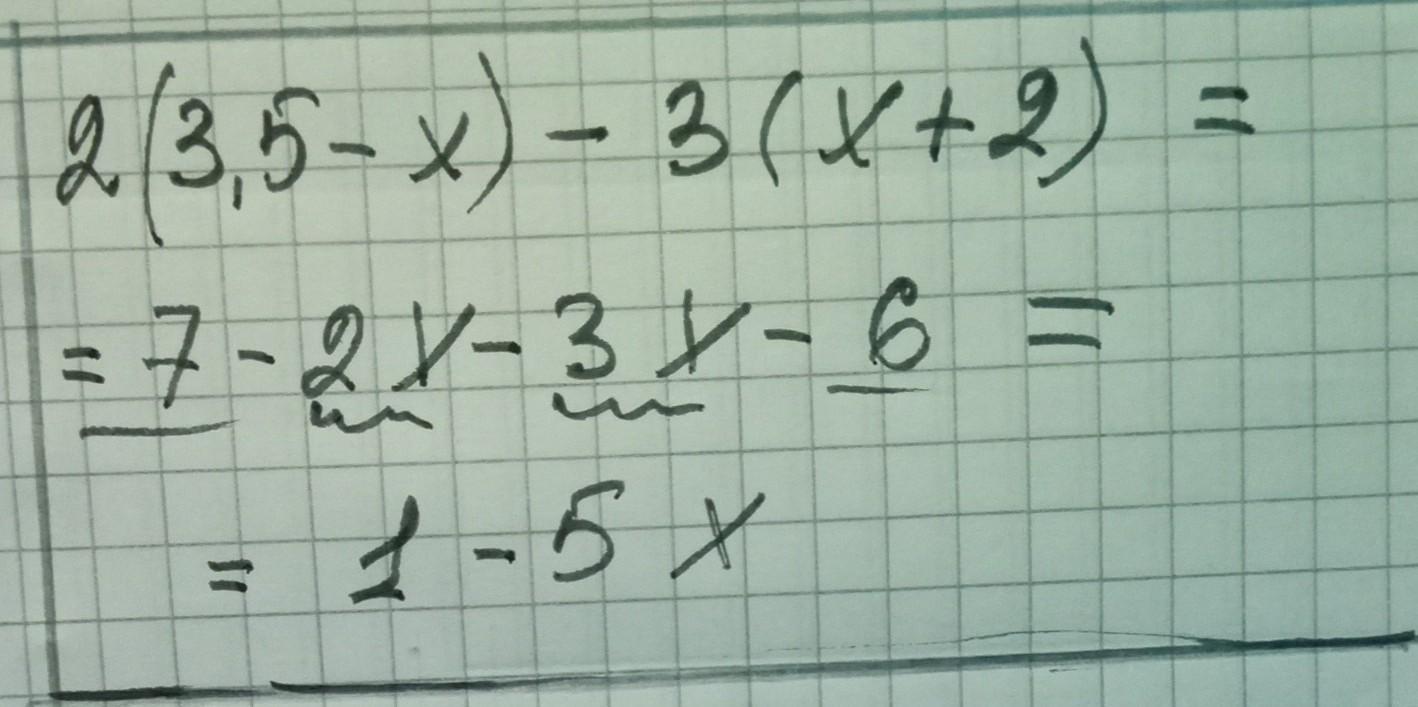 2(3,5 - x) - 3(x + 2) =
= 7 - 2x - 3x - 6 =
= 1 - 5x